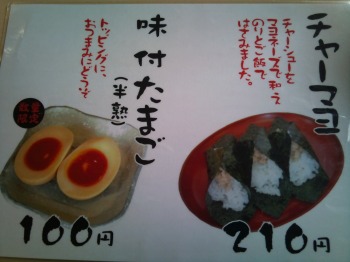 チャーマヨ
チャーシューを
マヨネーズで和え
のりとご飯で
はさみました。
210円
味付たまご
(半熟)
トッピングに、
おつまみにどうぞ
数量
限定
100円